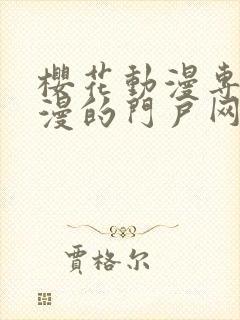 櫻花動漫專
漫的門戶网
賈格尔